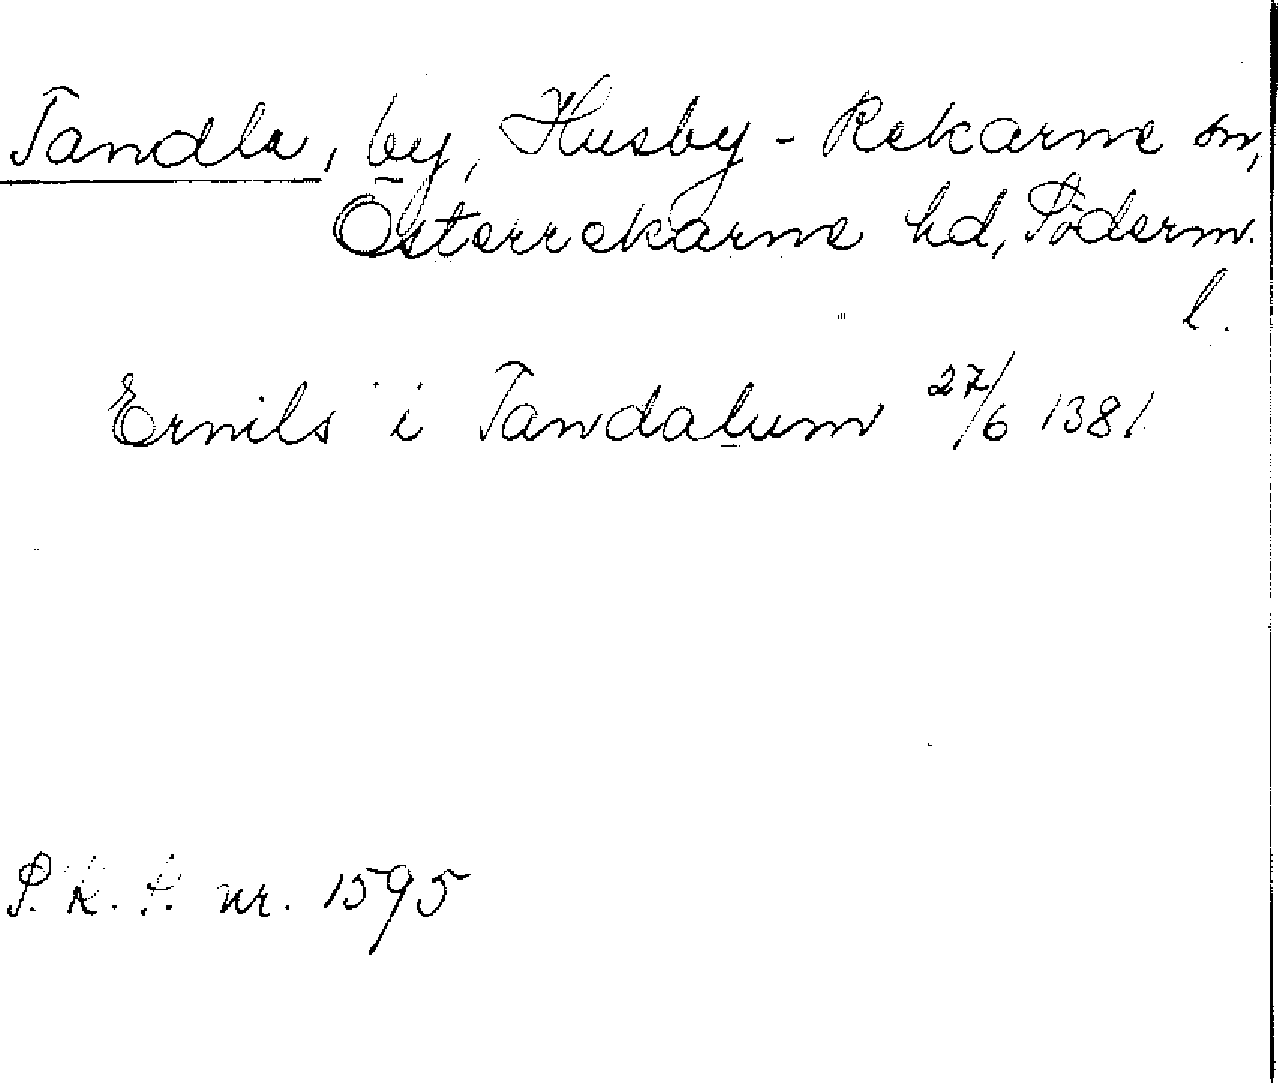 Tandla, by, Husby-Rekarne sn,
Österrekarne hd, Söderm.
l.
Ernils i Tandalum 27/6 1381
S.R.P. nr. 1595